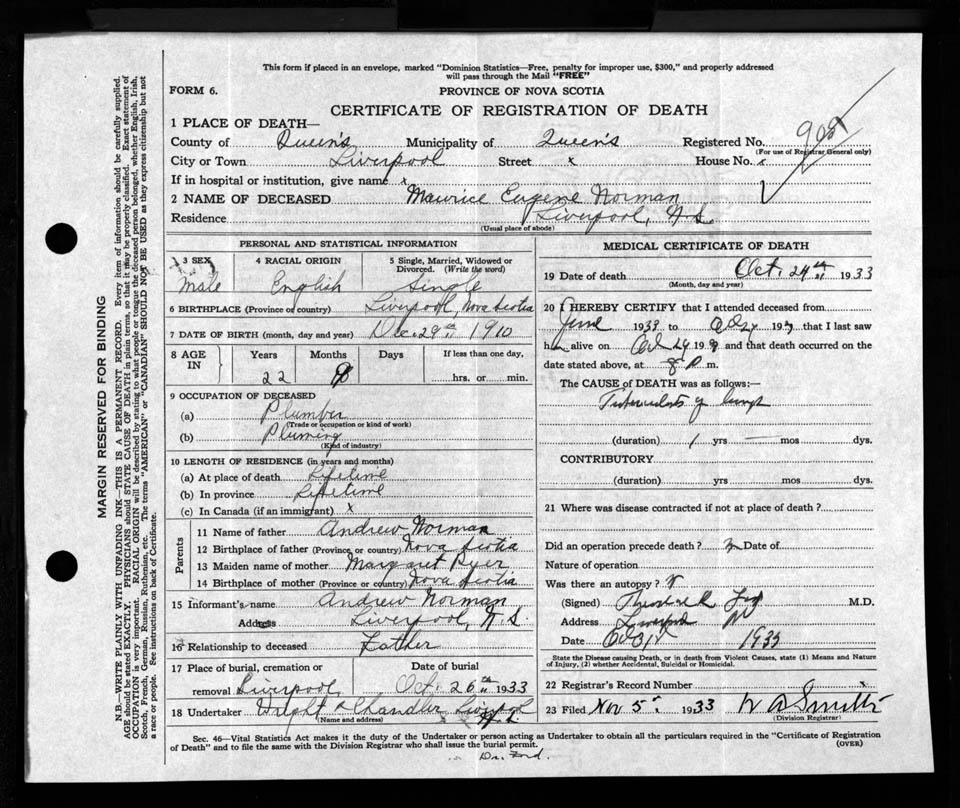 This form if placed in an envelope, marked "Dominion Statistics—Free, penalty for improper use, $300," and properly addressed
will pass through the Mail "FREE"
FORM 6.
PROVINCE OF NOVA SCOTIA
CERTIFICATE OF REGISTRATION OF DEATH
1 PLACE OF DEATH—
County of Queen's Municipality of Queen's Registered No. 908
(For use of Registrar General only)
City or Town Liverpool Street x House No. x
If in hospital or institution, give name x
2 NAME OF DECEASED Maurice Eugene Norman
Residence Liverpool, N.S.
(Usual place of abode)
PERSONAL AND STATISTICAL INFORMATION
3 SEX 4 RACIAL ORIGIN 5 Single, Married, Widowed or
Divorced. (Write the word)
Male English Single
6 BIRTHPLACE (Province or country) Liverpool, Nova Scotia
7 DATE OF BIRTH (month, day and year) Dec. 29th 1910
8 AGE IN Years Months Days If less than one day,
22 hrs. or min.
9 OCCUPATION OF DECEASED
(a) Plumber
(Trade or occupation or kind of work)
(b) Pluming
(Kind of industry)
10 LENGTH OF RESIDENCE (in years and months)
(a) At place of death Lifetime
(b) In province Lifetime
(c) In Canada (if an immigrant) x
Parents
11 Name of father Andrew Norman
12 Birthplace of father (Province or country) Nova Scotia
13 Maiden name of mother Margaret
14 Birthplace of mother (Province or country) Nova Scotia
15 Informant's name Andrew Norman
Address Liverpool, N.S.
16 Relationship to deceased Father
17 Place of burial, cremation or Date of burial
removal Liverpool, Oct. 26th 1933
18 Undertaker Wright & Chandler Liverpool
(Name and address) N.S.
MEDICAL CERTIFICATE OF DEATH
19 Date of death Oct. 24th 1933
(Month, day and year)
20 I HEREBY CERTIFY that I attended deceased from
June 1933 to Oct 24 19 that I last saw
him alive on Oct 24 19 and that death occurred on the
date stated above, at 8 P m.
The CAUSE OF DEATH was as follows:
Tuberculosis of lungs
(duration) 1 yrs — mos dys.
CONTRIBUTORY
(duration) yrs mos dys.
21 Where was disease contracted if not at place of death?
Did an operation precede death? Date of
Nature of operation
Was there an autopsy?
(Signed) M.D.
Address Liverpool
Date Oct 31 1933
State the Disease causing Death, or in death from Violent Causes, state (1) Means and Nature
of Injury, (2) whether Accidental, Suicidal or Homicidal.
22 Registrar's Record Number x
23 Filed Nov 5 1933 W A Smith
(Division Registrar)
Sec. 46—Vital Statistics Act makes it the duty of the Undertaker or person acting as Undertaker to obtain all the particulars required in the "Certificate of Registration
of Death" and to file the same with the Division Registrar who shall issue the burial permit. (OVER)
Dr. Ford.
MARGIN RESERVED FOR BINDING
N.B.—WRITE PLAINLY WITH UNFADING INK—THIS IS A PERMANENT RECORD. Every item of information should be carefully supplied.
AGE should be stated EXACTLY. PHYSICIANS should STATE CAUSE OF DEATH in plain terms, so that it may be properly classified. Exact statement of
OCCUPATION is very important. RACIAL ORIGIN will be described by stating to what people or tongue the deceased person belonged, whether English, Irish,
Scotch, French, German, Russian, Ruthenian, etc. The terms "AMERICAN" or "CANADIAN" SHOULD NOT BE USED as they express citizenship but not
a race or people. See instructions on back of Certificate.